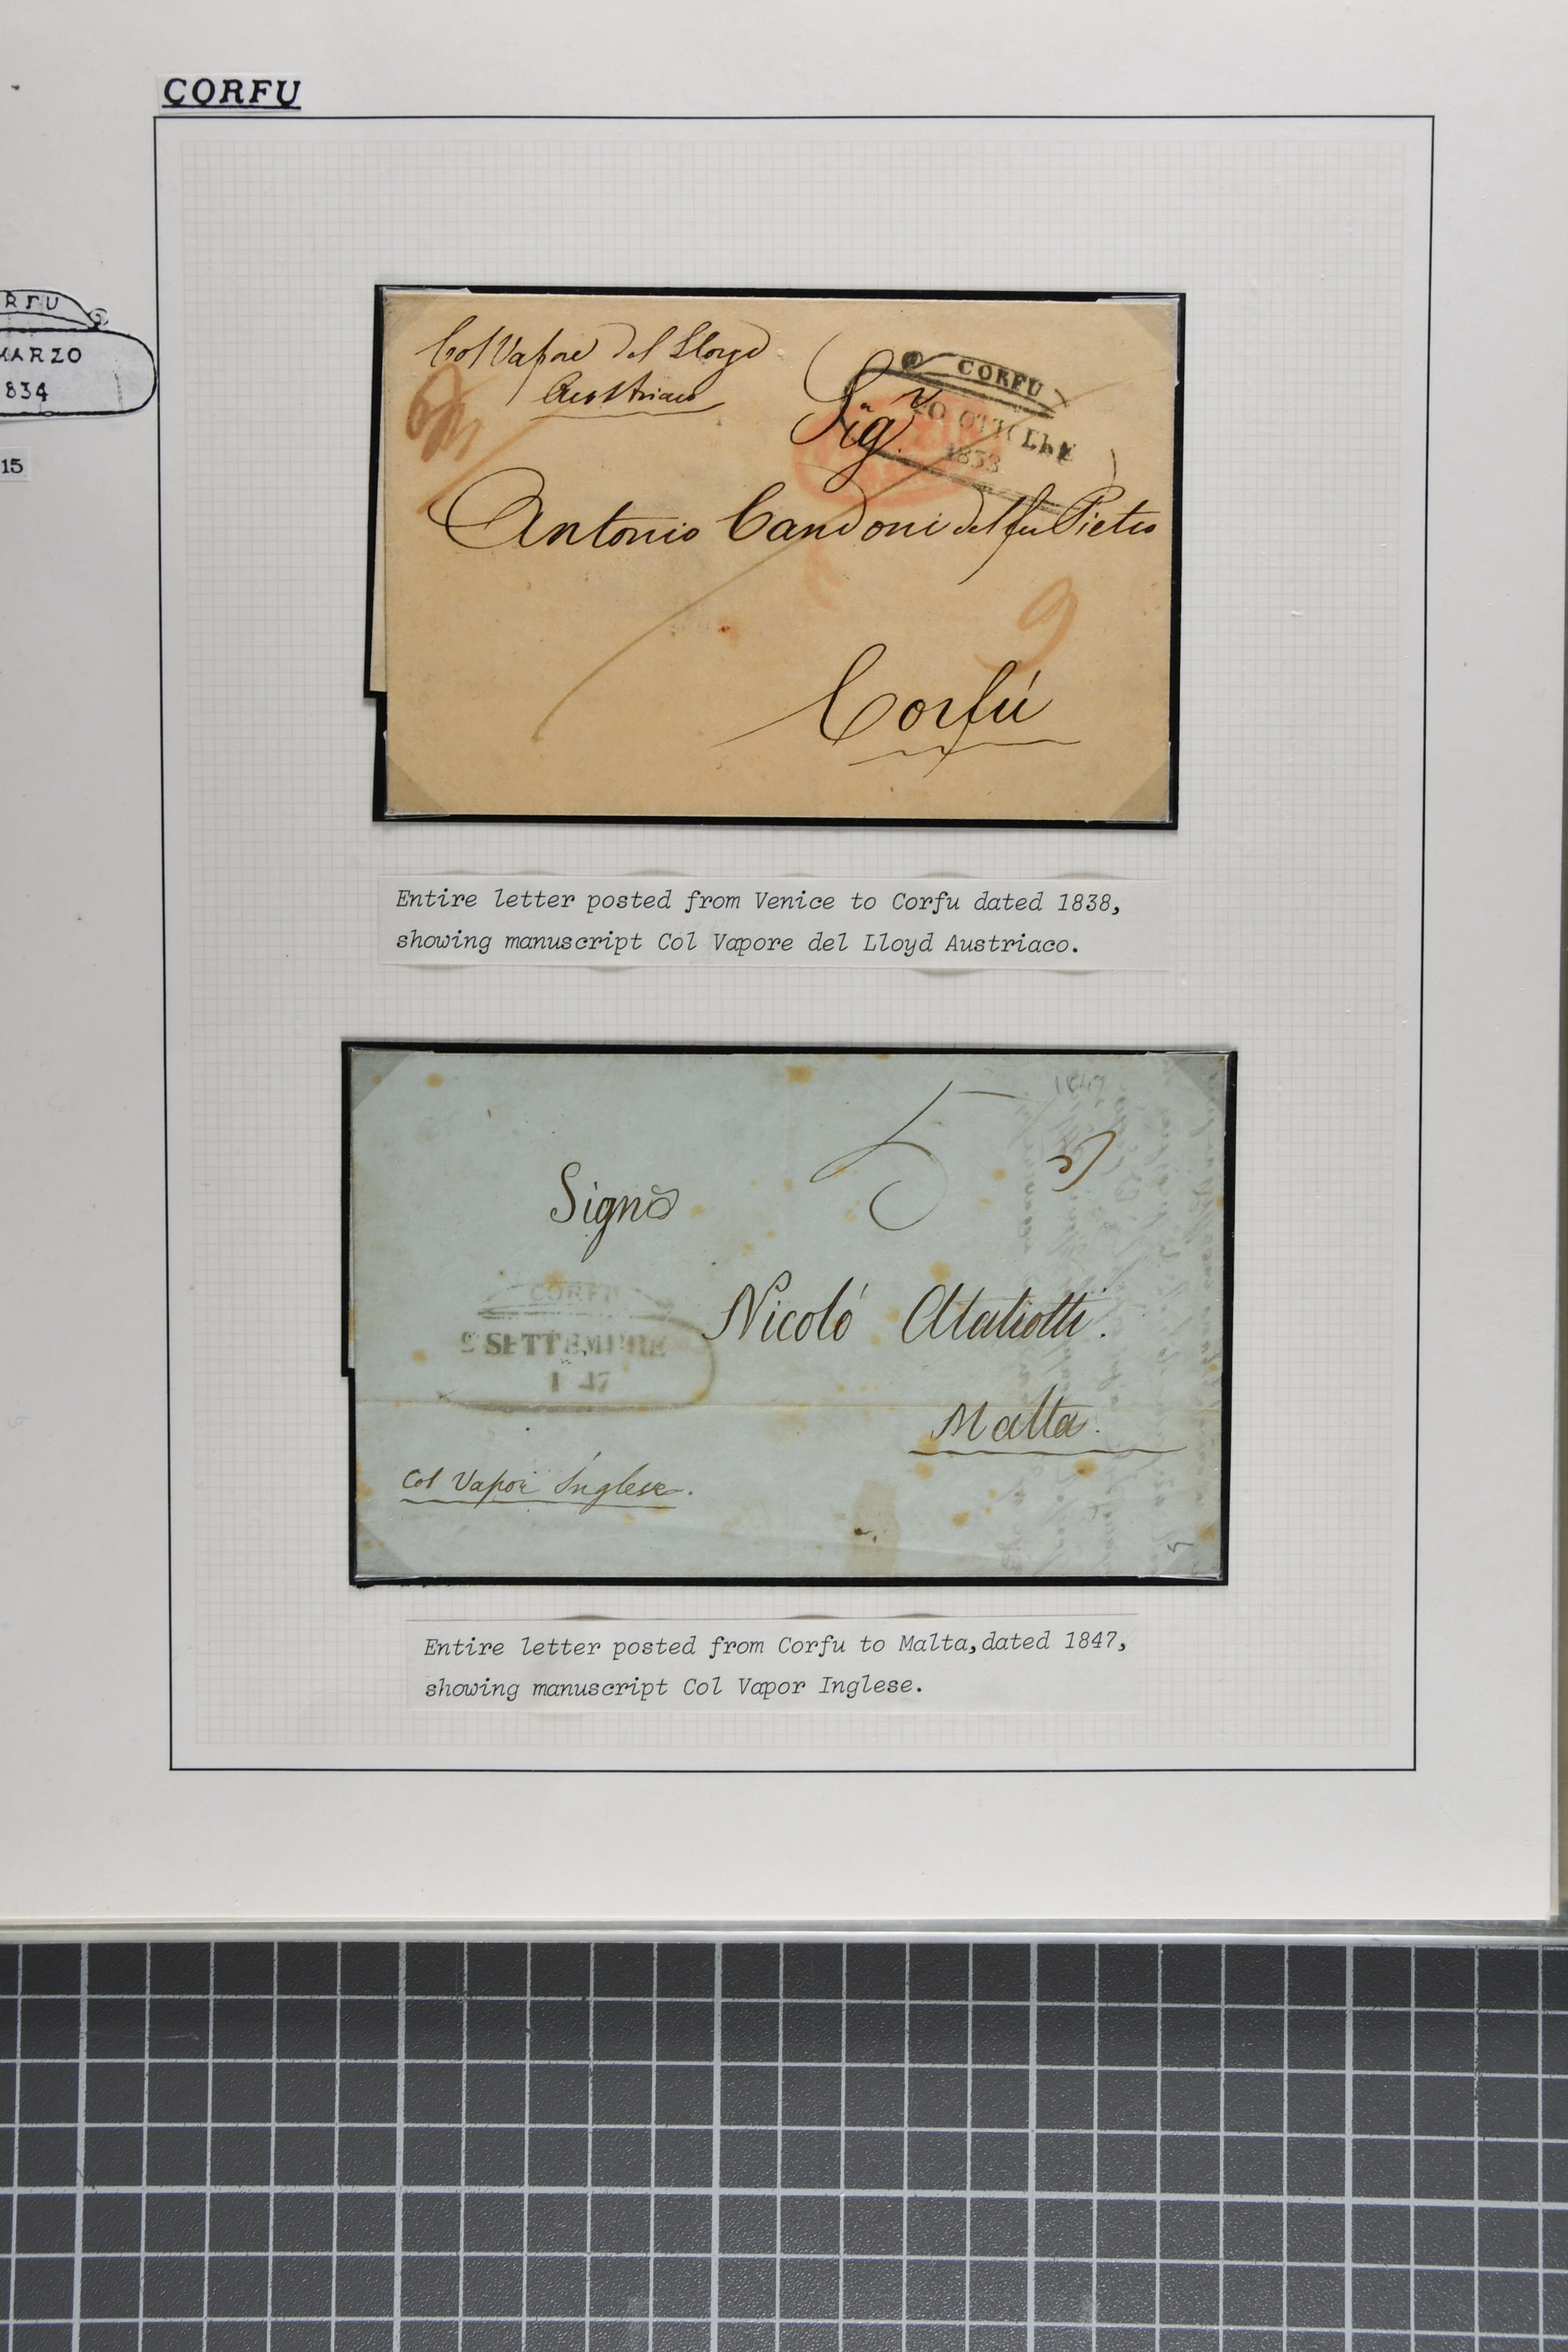 CORFU
RFU
MARZO
834
15
Col Vapore del Lloyd
Austriaco
CORFU
1838
Sigr
Antonio Candoni del fu Pietro
9
Corfú
Entire letter posted from Venice to Corfu dated 1838,
showing manuscript Col Vapore del Lloyd Austriaco.
1847
5
Signor
CORFU
SETTEMBRE
47
Nicoló
Malta.
Col Vapor Inglese.
5
Entire letter posted from Corfu to Malta,dated 1847,
showing manuscript Col Vapor Inglese.